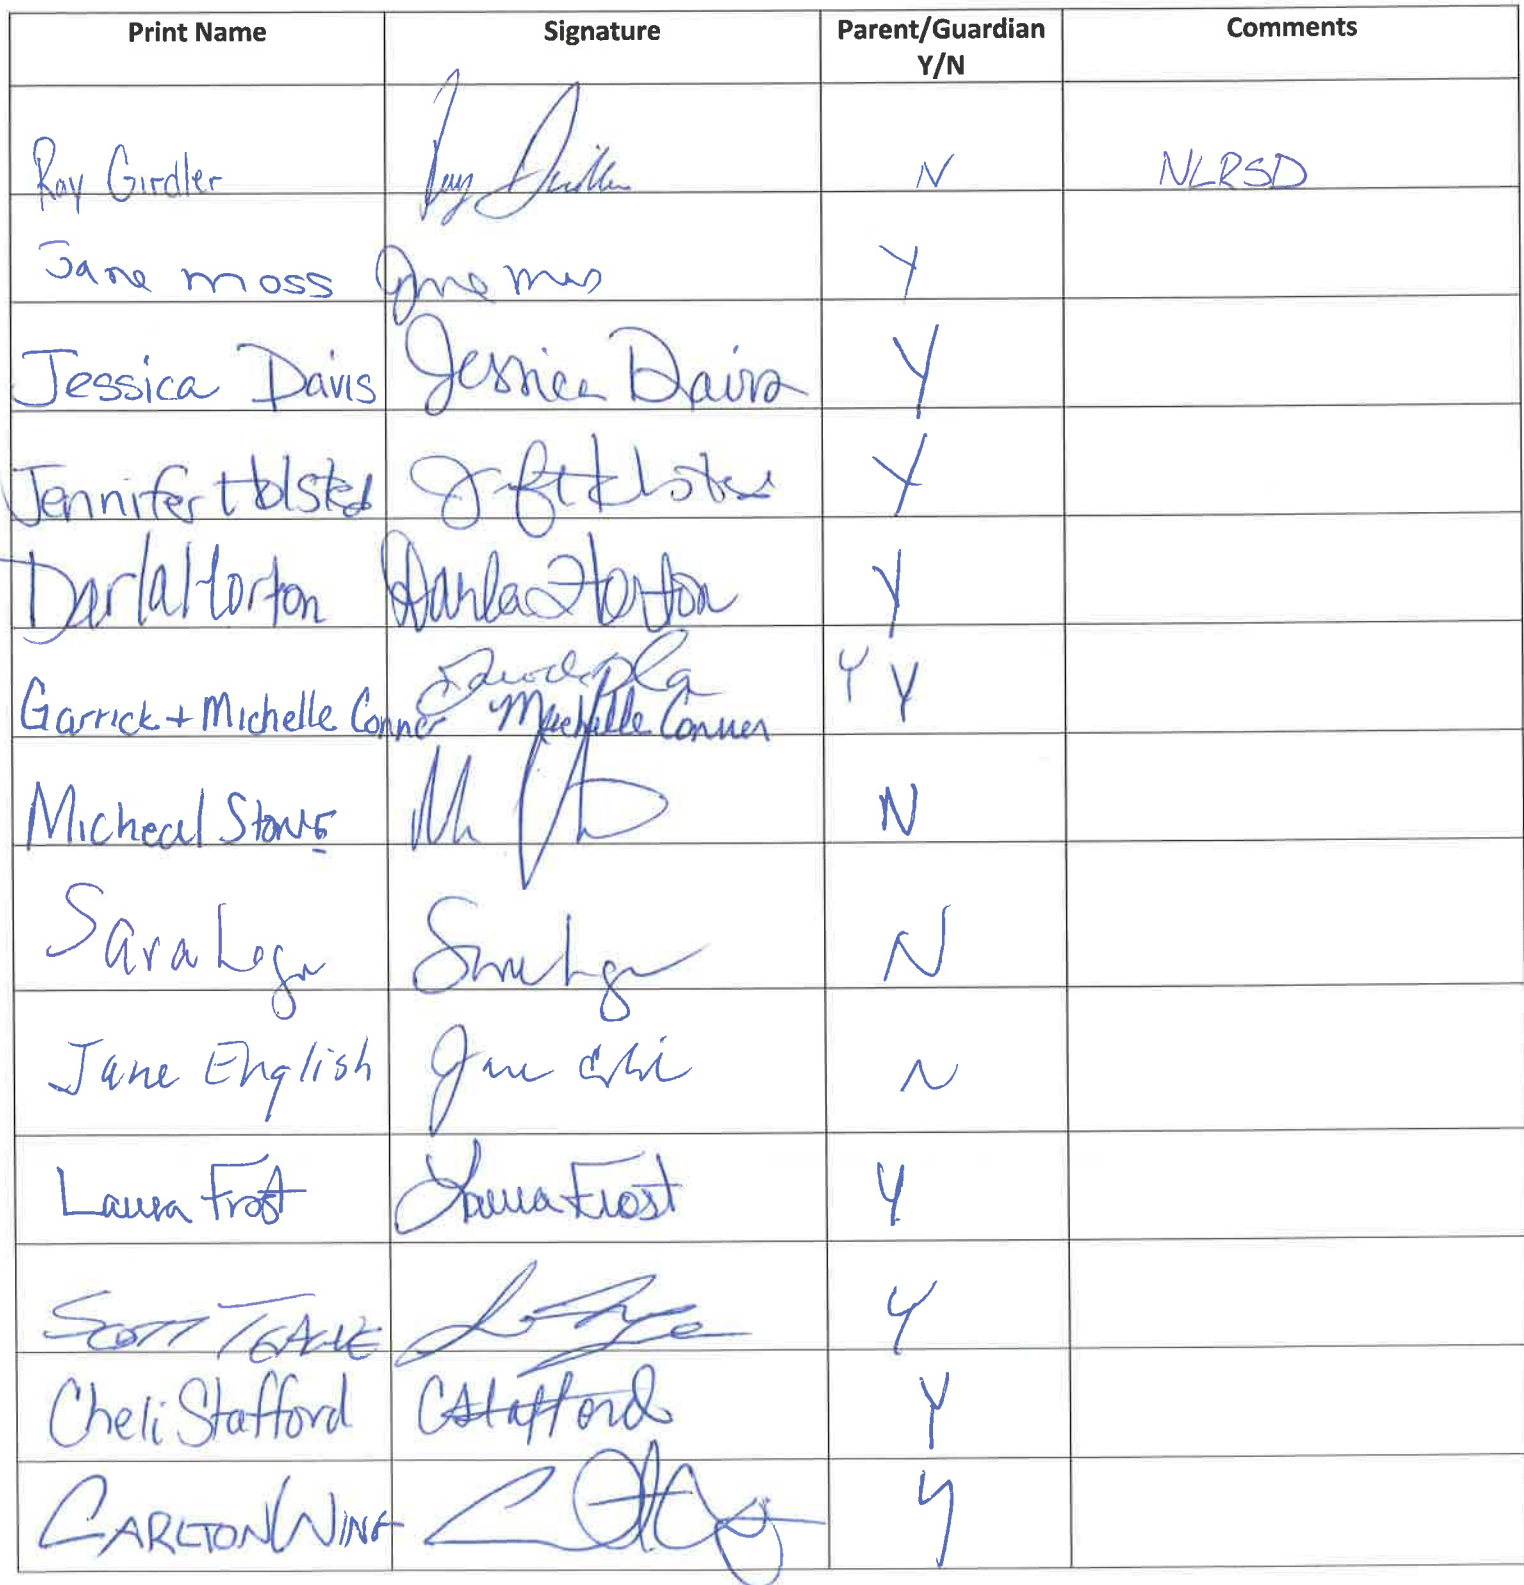 Print Name Signature Parent/Guardian Y/N Comments
Ray Girdler Ray Girdler N NLRSD
Jane moss Jane moss Y
Jessica Davis Jessica Davis Y
Jennifer Holsted Y
Darla Horton Darla Horton Y
Garrick + Michelle Conner Michelle Conner Y Y
Micheal Stone N
Sara Logan N
Jane English Jane N
Laura Frost Laura Frost Y
SCOTT Y
Cheli Stafford CStafford Y
CARLTON WING Y